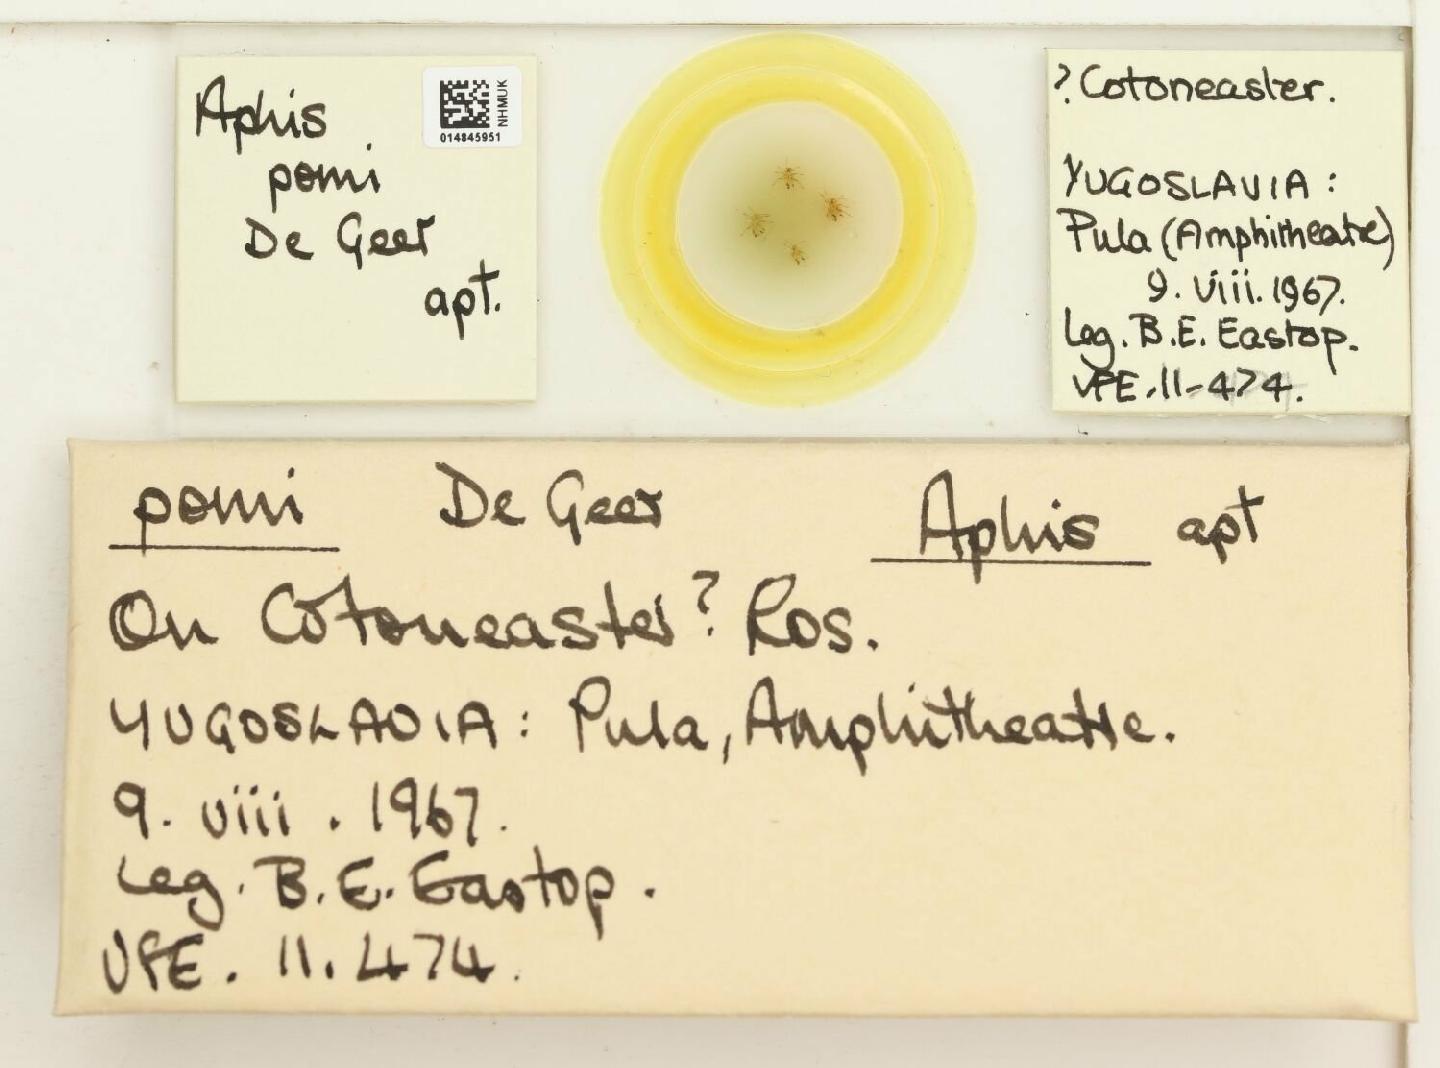 Aphis
pomi
De Geer
apt.
NHMUK
014845951
? Cotoneaster.
YUGOSLAVIA:
Pula (Amphitheatre)
9. viii. 1967.
Leg. B.E. Eastop.
VFE. 11-474.
pomi De Geer Aphis apt
On Cotoneaster? Ros.
YUGOSLAVIA: Pula, Amphitheatre.
9. viii. 1967.
Leg. B.E. Eastop.
VFE. 11.474.